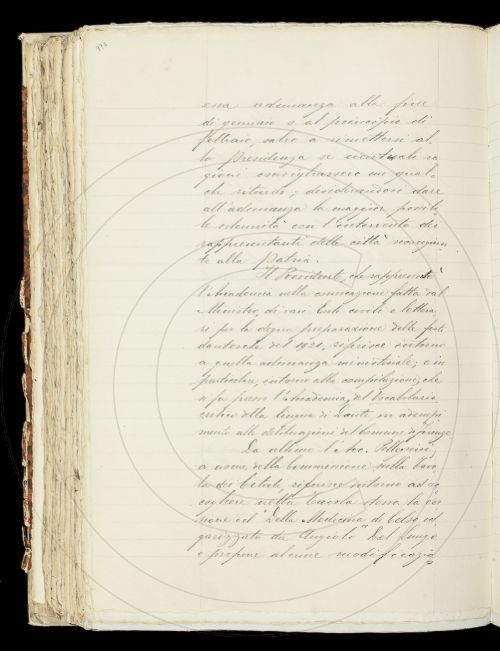 essa adunanza alla fine
di gennaio o al principio di
febbraio, salvo a rimettersi al,
la Presidenza se eventuali ra,
gioni consigliassero un qual,
che ritardo; desiderandosi dare
all'adunanza la maggior possibi,
le solennità con l'intervento dei
rappresentanti delle città ricongiun,
te alla Patria.
Il Presidente, che rappresentò
l'Accademia nella convocazione fatta dal
Ministro, di vari Enti civili e lettera,
ri per la degna preparazione delle feste
dantesche del 1921, riferisce intorno
a quella adunanza ministeriale; e in
particolare, intorno alla compilazione, che
si fa presso l'Accademia, del Vocabolario
critico della lingua di Dante, in adempi,
mento alle deliberazioni del Comune di Firenze.
Da ultimo l'Acc. Pellegrini,
a nome della Commissione sulla Tavo,
la dei Citati, riferisce intorno ad ac,
cogliere nella Tavola stessa la ver,
sione del "Della Medicina di Celso vol,
garizzata da Angiolo" Del Lungo
e propone alcune modificazio,